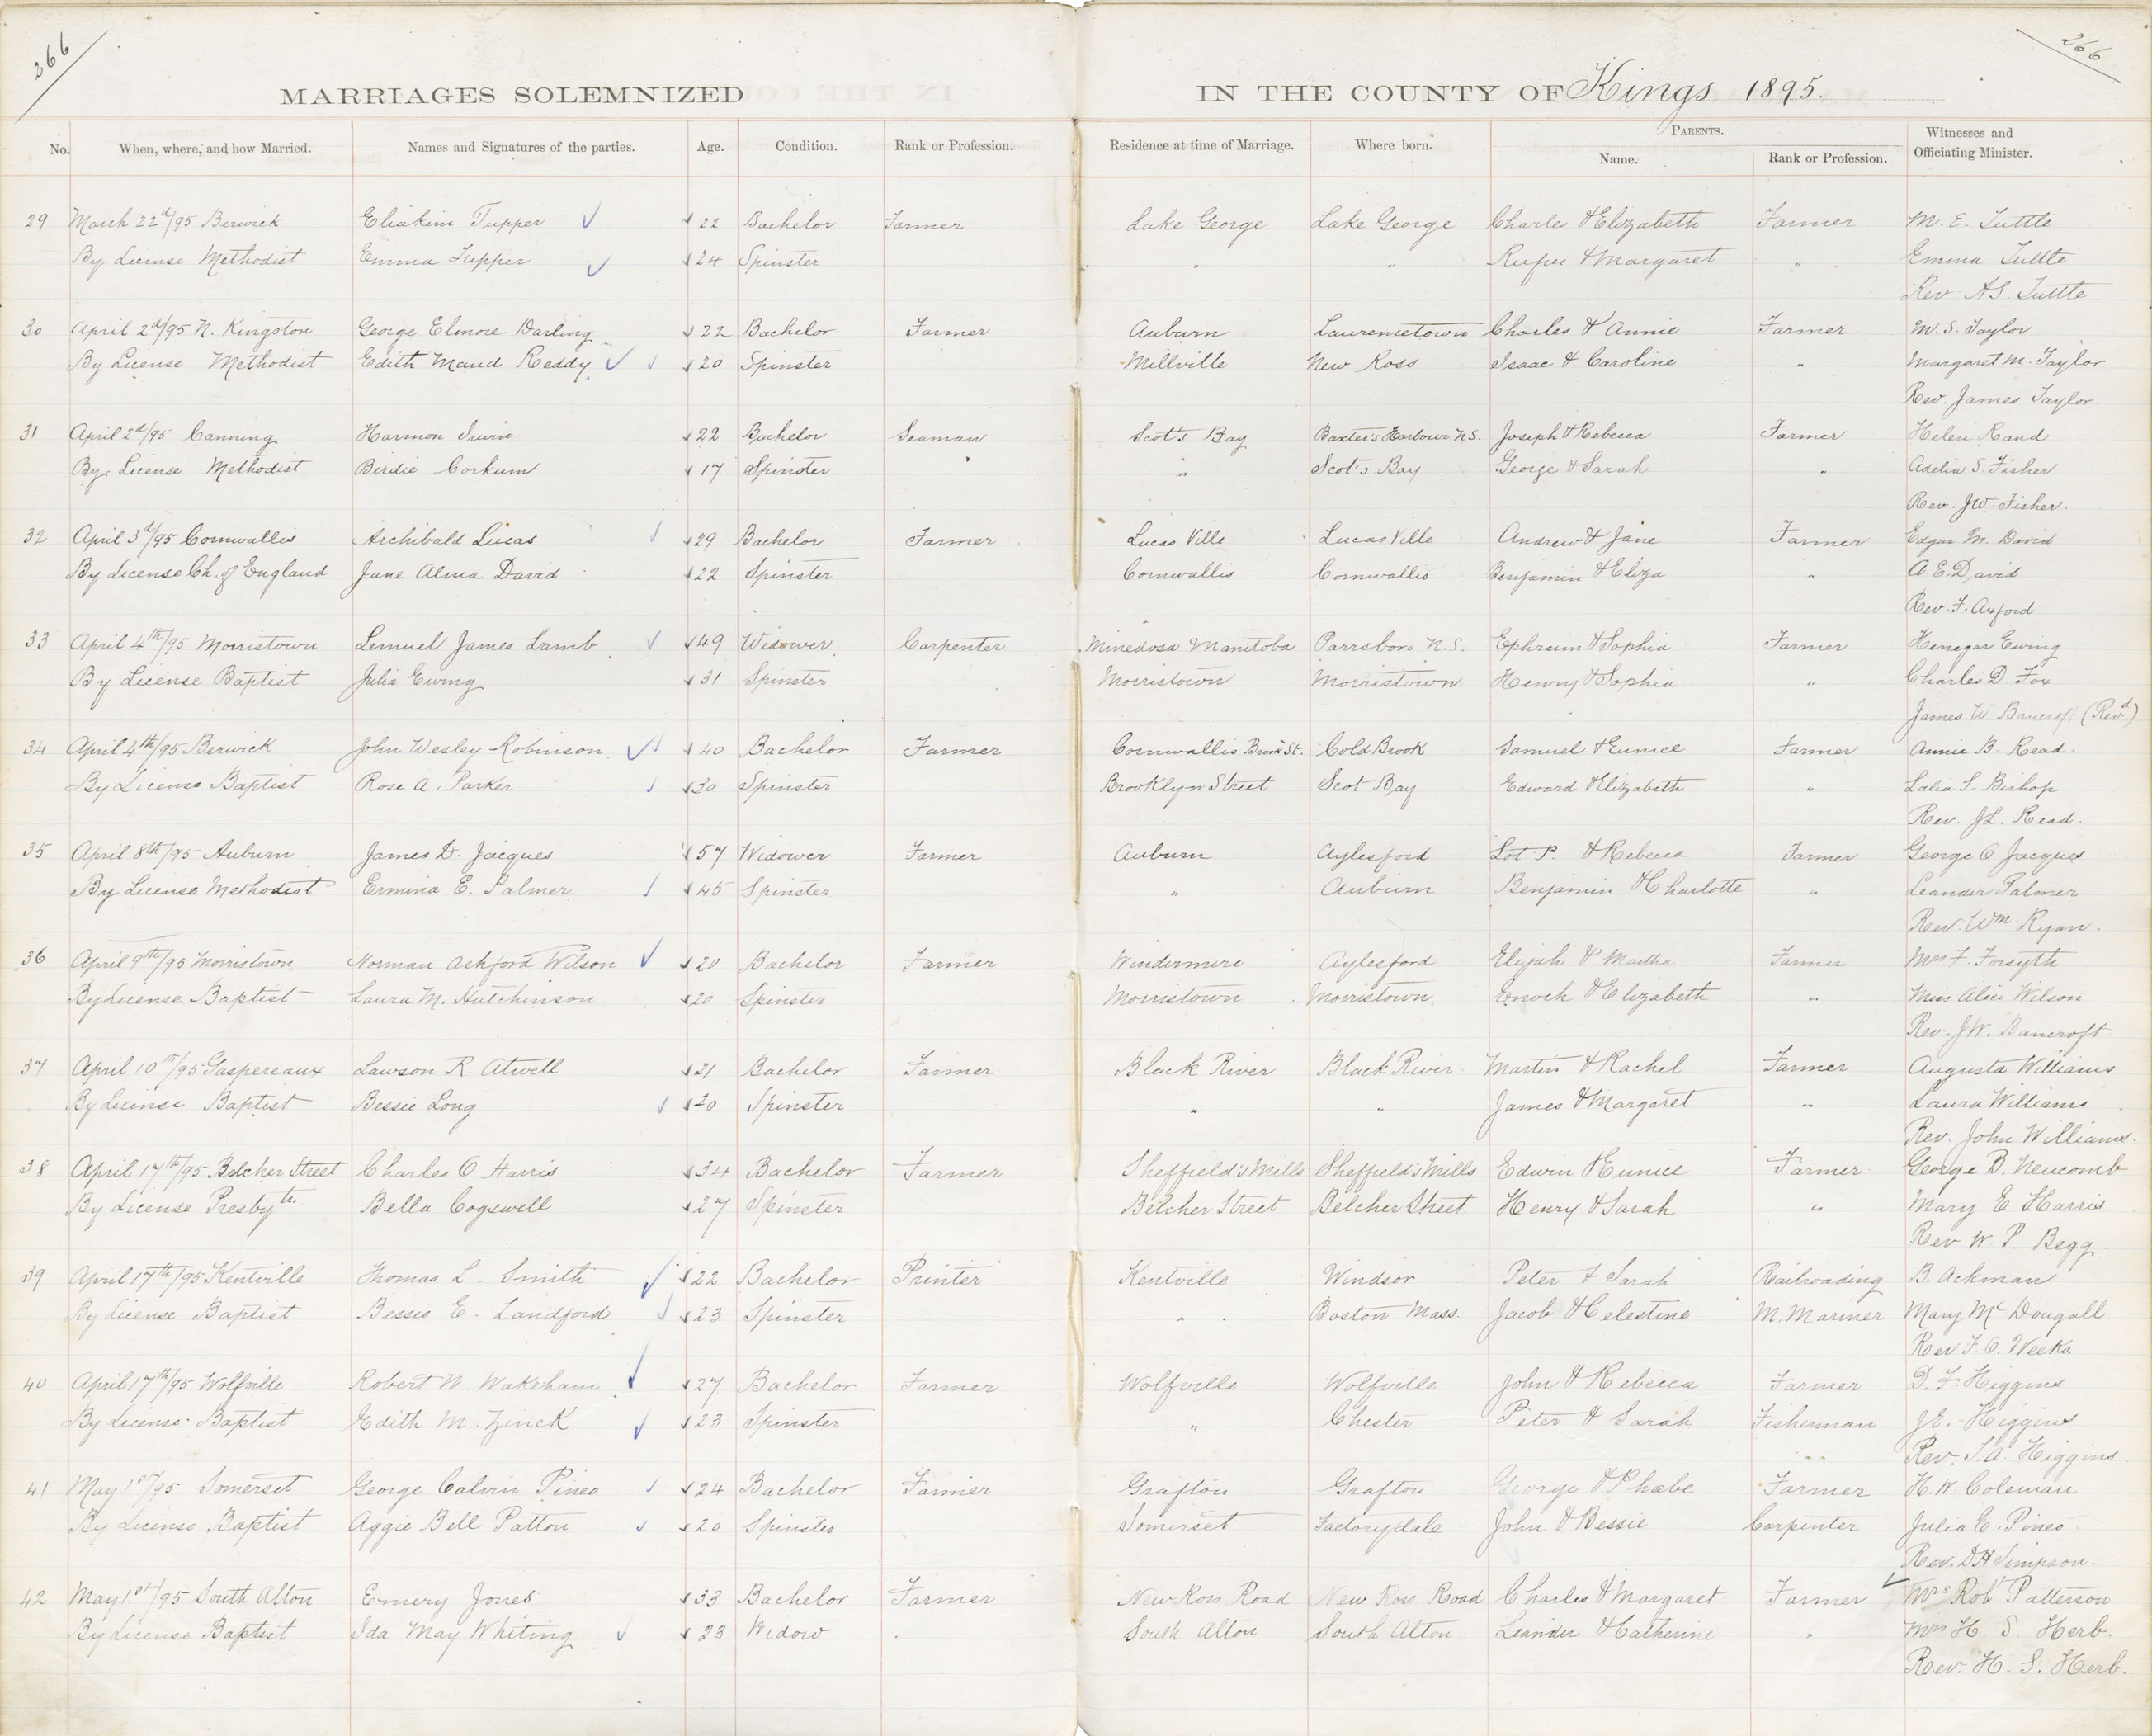 266
266
MARRIAGES SOLEMNIZED IN THE COUNTY OF Kings 1895.
No. When, where, and how Married. Names and Signatures of the parties. Age. Condition. Rank or Profession. Residence at time of Marriage. Where born. PARENTS. Name. Rank or Profession. Witnesses and Officiating Minister.
29 March 22d/95 Berwick Eliakim Tupper 22 Bachelor Farmer Lake George Lake George Charles & Elizabeth Farmer M. E. Tuttle
By License Methodist Emma Tupper 24 Spinster " " Rufus & Margaret " Emma Tuttle
Rev AS Tuttle
30 April 2d/95 N. Kingston George Elmore Darling 22 Bachelor Farmer Auburn Laurencetown Charles & Annie Farmer M. S. Taylor
By License Methodist Edith Maud Reddy 20 Spinster Millville New Ross Isaac & Caroline " Margaret M. Taylor
Rev. James Taylor
31 April 2d/95 Canning Harmon Irwin 22 Bachelor Seaman Scot's Bay Baxter's Harbour N.S. Joseph & Rebecca Farmer Helen Rand
By License Methodist Birdie Corkum 17 Spinster " Scot's Bay George & Sarah " Adelia S. Fisher
Rev. JW. Fisher.
32 April 3d/95 Cornwallis Archibald Lucas 29 Bachelor Farmer Lucas Ville Lucas Ville Andrew & Jane Farmer Edgar M. David
By License Ch. of England Jane Alma David 22 Spinster Cornwallis Cornwallis Benjamin & Eliza " A. E. David
Rev. F. Axford
33 April 4th/95 Morristown Lemuel James Lamb 49 Widower Carpenter Minedosa Manitoba Parrsboro N.S. Ephraim & Sophia Farmer Henegar Ewing
By License Baptist Julia Ewing 31 Spinster Morristown Morristown Henry & Sophia " Charles D. Fox
James W. Bancroft (Revd)
34 April 4th/95 Berwick John Wesley Robinson 40 Bachelor Farmer Cornwallis Brook St. Cold Brook Samuel & Eunice Farmer Annie B. Read.
By License Baptist Rose A. Parker 30 Spinster Brooklyn Street Scot Bay Edward & Elizabeth " Lalia S. Bishop
Rev. JL. Read.
35 April 8th/95 Auburn James D. Jacques 57 Widower Farmer Auburn Aylesford Lot P. & Rebecca Farmer George O Jacques
By License Methodist Ermina E. Palmer 45 Spinster " Auburn Benjamin & Charlotte " Leander Palmer
Rev. Wm. Ryan.
36 April 9th/95 Morristown Norman Ashford Wilson 20 Bachelor Farmer Windermere Aylesford Elijah & Martha Farmer Mrs F. Forsyth
By License Baptist Laura M. Hutchinson 20 Spinster Morristown Morristown Enoch & Elizabeth " Miss Alice Wilson
Rev. JW. Bancroft
37 April 10th/95 Gaspereaux Lawson R. Atwell 21 Bachelor Farmer Black River Black River Martin & Rachel Farmer Augusta Williams
By License Baptist Bessie Long 20 Spinster " " James & Margaret " Laura Williams
Rev. John Williams.
38 April 17th/95 Belcher Street Charles O Harris 34 Bachelor Farmer Sheffield's Mills Sheffield's Mills Edwin & Eunice Farmer George B. Newcomb
By License Presbytn. Bella Cogswell 27 Spinster Belcher Street Belcher Street Henry & Sarah " Mary E Harris
Rev W. P. Begg.
39 April 17th/95 Kentville Thomas L. Smith 22 Bachelor Printer Kentville Windsor Peter & Sarah Railroading B. Ackman
By License Baptist Bessie E. Landford 23 Spinster " Boston Mass. Jacob & Celestine M. Mariner Mary McDougall
Rev F. O. Weeks.
40 April 17th/95 Wolfville Robert W. Wakeham 27 Bachelor Farmer Wolfville Wolfville John & Rebecca Farmer D. F. Higgins
By License Baptist Edith M. Zinck 23 Spinster " Chester Peter & Sarah Fisherman J.E. Higgins
Rev. T. A. Higgins
41 May 1st/95 Somerset George Calvin Pineo 24 Bachelor Farmer Grafton Grafton George & Phabe Farmer H. W. Coleman
By License Baptist Aggie Bell Patton 20 Spinster Somerset Factorydale John & Bessie Carpenter Julia E. Pineo
Rev. DH Simpson.
42 May 1st/95 South Alton Emery Jones 33 Bachelor Farmer New Ross Road New Ross Road Charles & Margaret Farmer Mrs Robt Patterson
By License Baptist Ida May Whiting 23 Widow South Alton South Alton Leander & Catherine " Mrs H. S. Herb.
Rev. H. S. Herb.